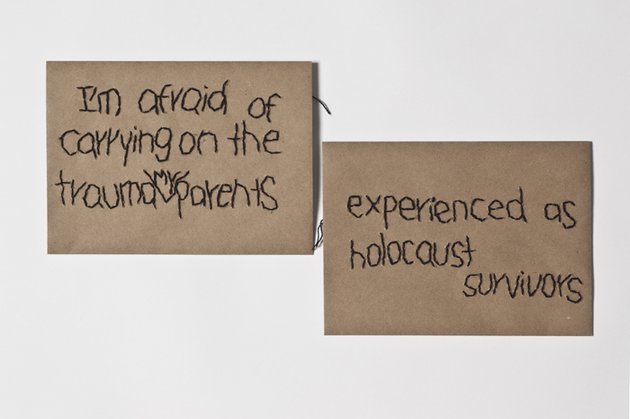 I'm afraid of
carrying on the
trauma my parents
experienced as
holocaust
survivors